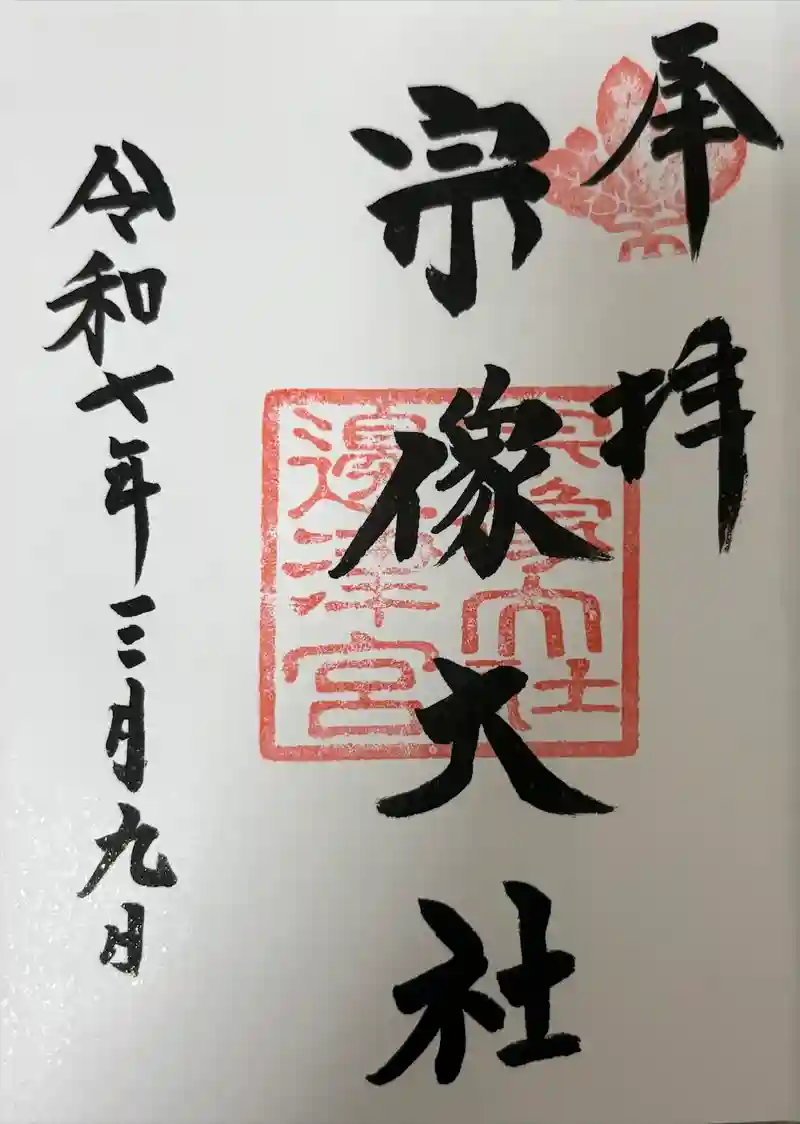 奉拝
宗像大社
令和七年三月九日
宗像大社
邊津宮